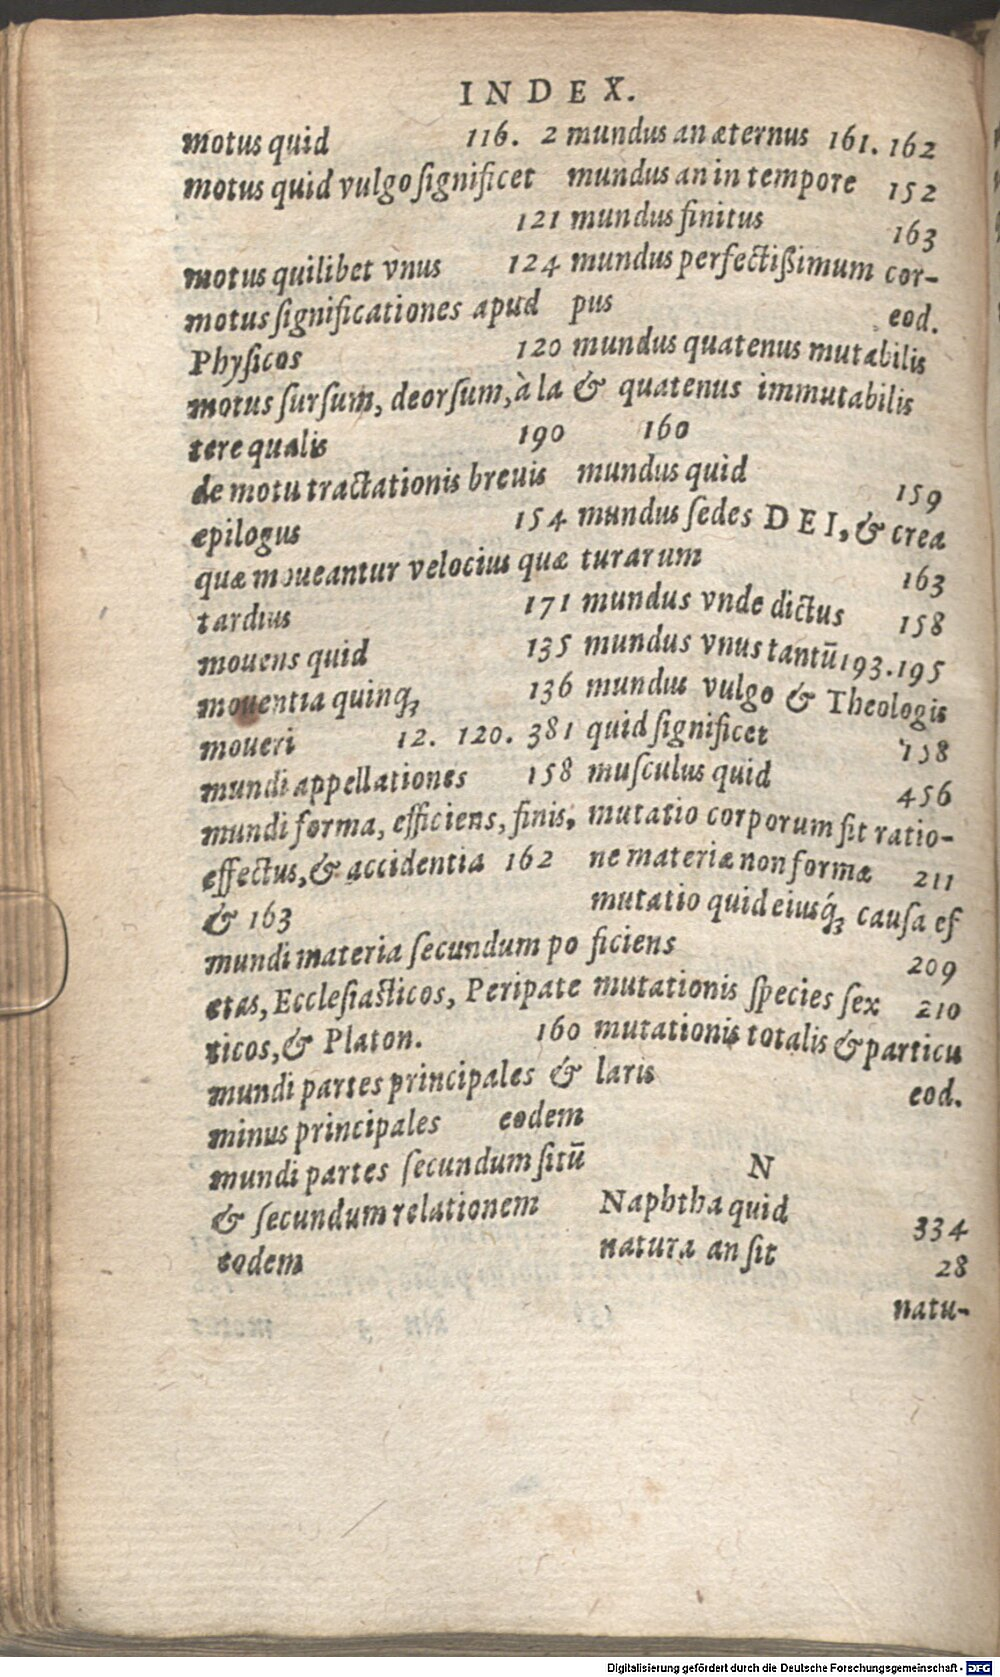 INDEX.
motus quid 116. 2
motus quid vulgo ſignificet
121
motus quilibet vnus 124
motus ſignificationes apud
Phyſicos 120
motus ſurſum, deorſum, à la
tere qualis 190
de motu tractationis breuis
epilogus 154
quæ moueantur velocius quæ
tardius 171
mouens quid 135
mouentia quinq; 136
moueri 12. 120. 381
mundi appellationes 158
mundi forma, efficiens, finis,
effectus, & accidentia 162
& 163
mundi materia ſecundum po
etas, Eccleſiaſticos, Peripate
ticos, & Platon. 160
mundi partes principales &
minus principales eodem
mundi partes ſecundum ſitū
& ſecundum relationem
eodem
mundus an æternus 161. 162
mundus an in tempore 152
mundus finitus 163
mundus perfectißimum cor-
pus eod.
mundus quatenus mutabilis
& quatenus immutabilis
160
mundus quid 159
mundus ſedes DEI, & crea
turarum 163
mundus vnde dictus 158
mundus vnus tantū 193. 195
mundus vulgo & Theologis
quid ſignificet 158
muſculus quid 456
mutatio corporum fit ratio-
ne materiæ non formæ 211
mutatio quid eiusq́; cauſa ef
ficiens 209
mutationis ſpecies ſex 210
mutationis totalis & particu
laris eod.
N
Naphtha quid 334
natura an ſit 28
natu-
Digitalisierung gefördert durch die Deutsche Forschungsgemeinschaft - DFG